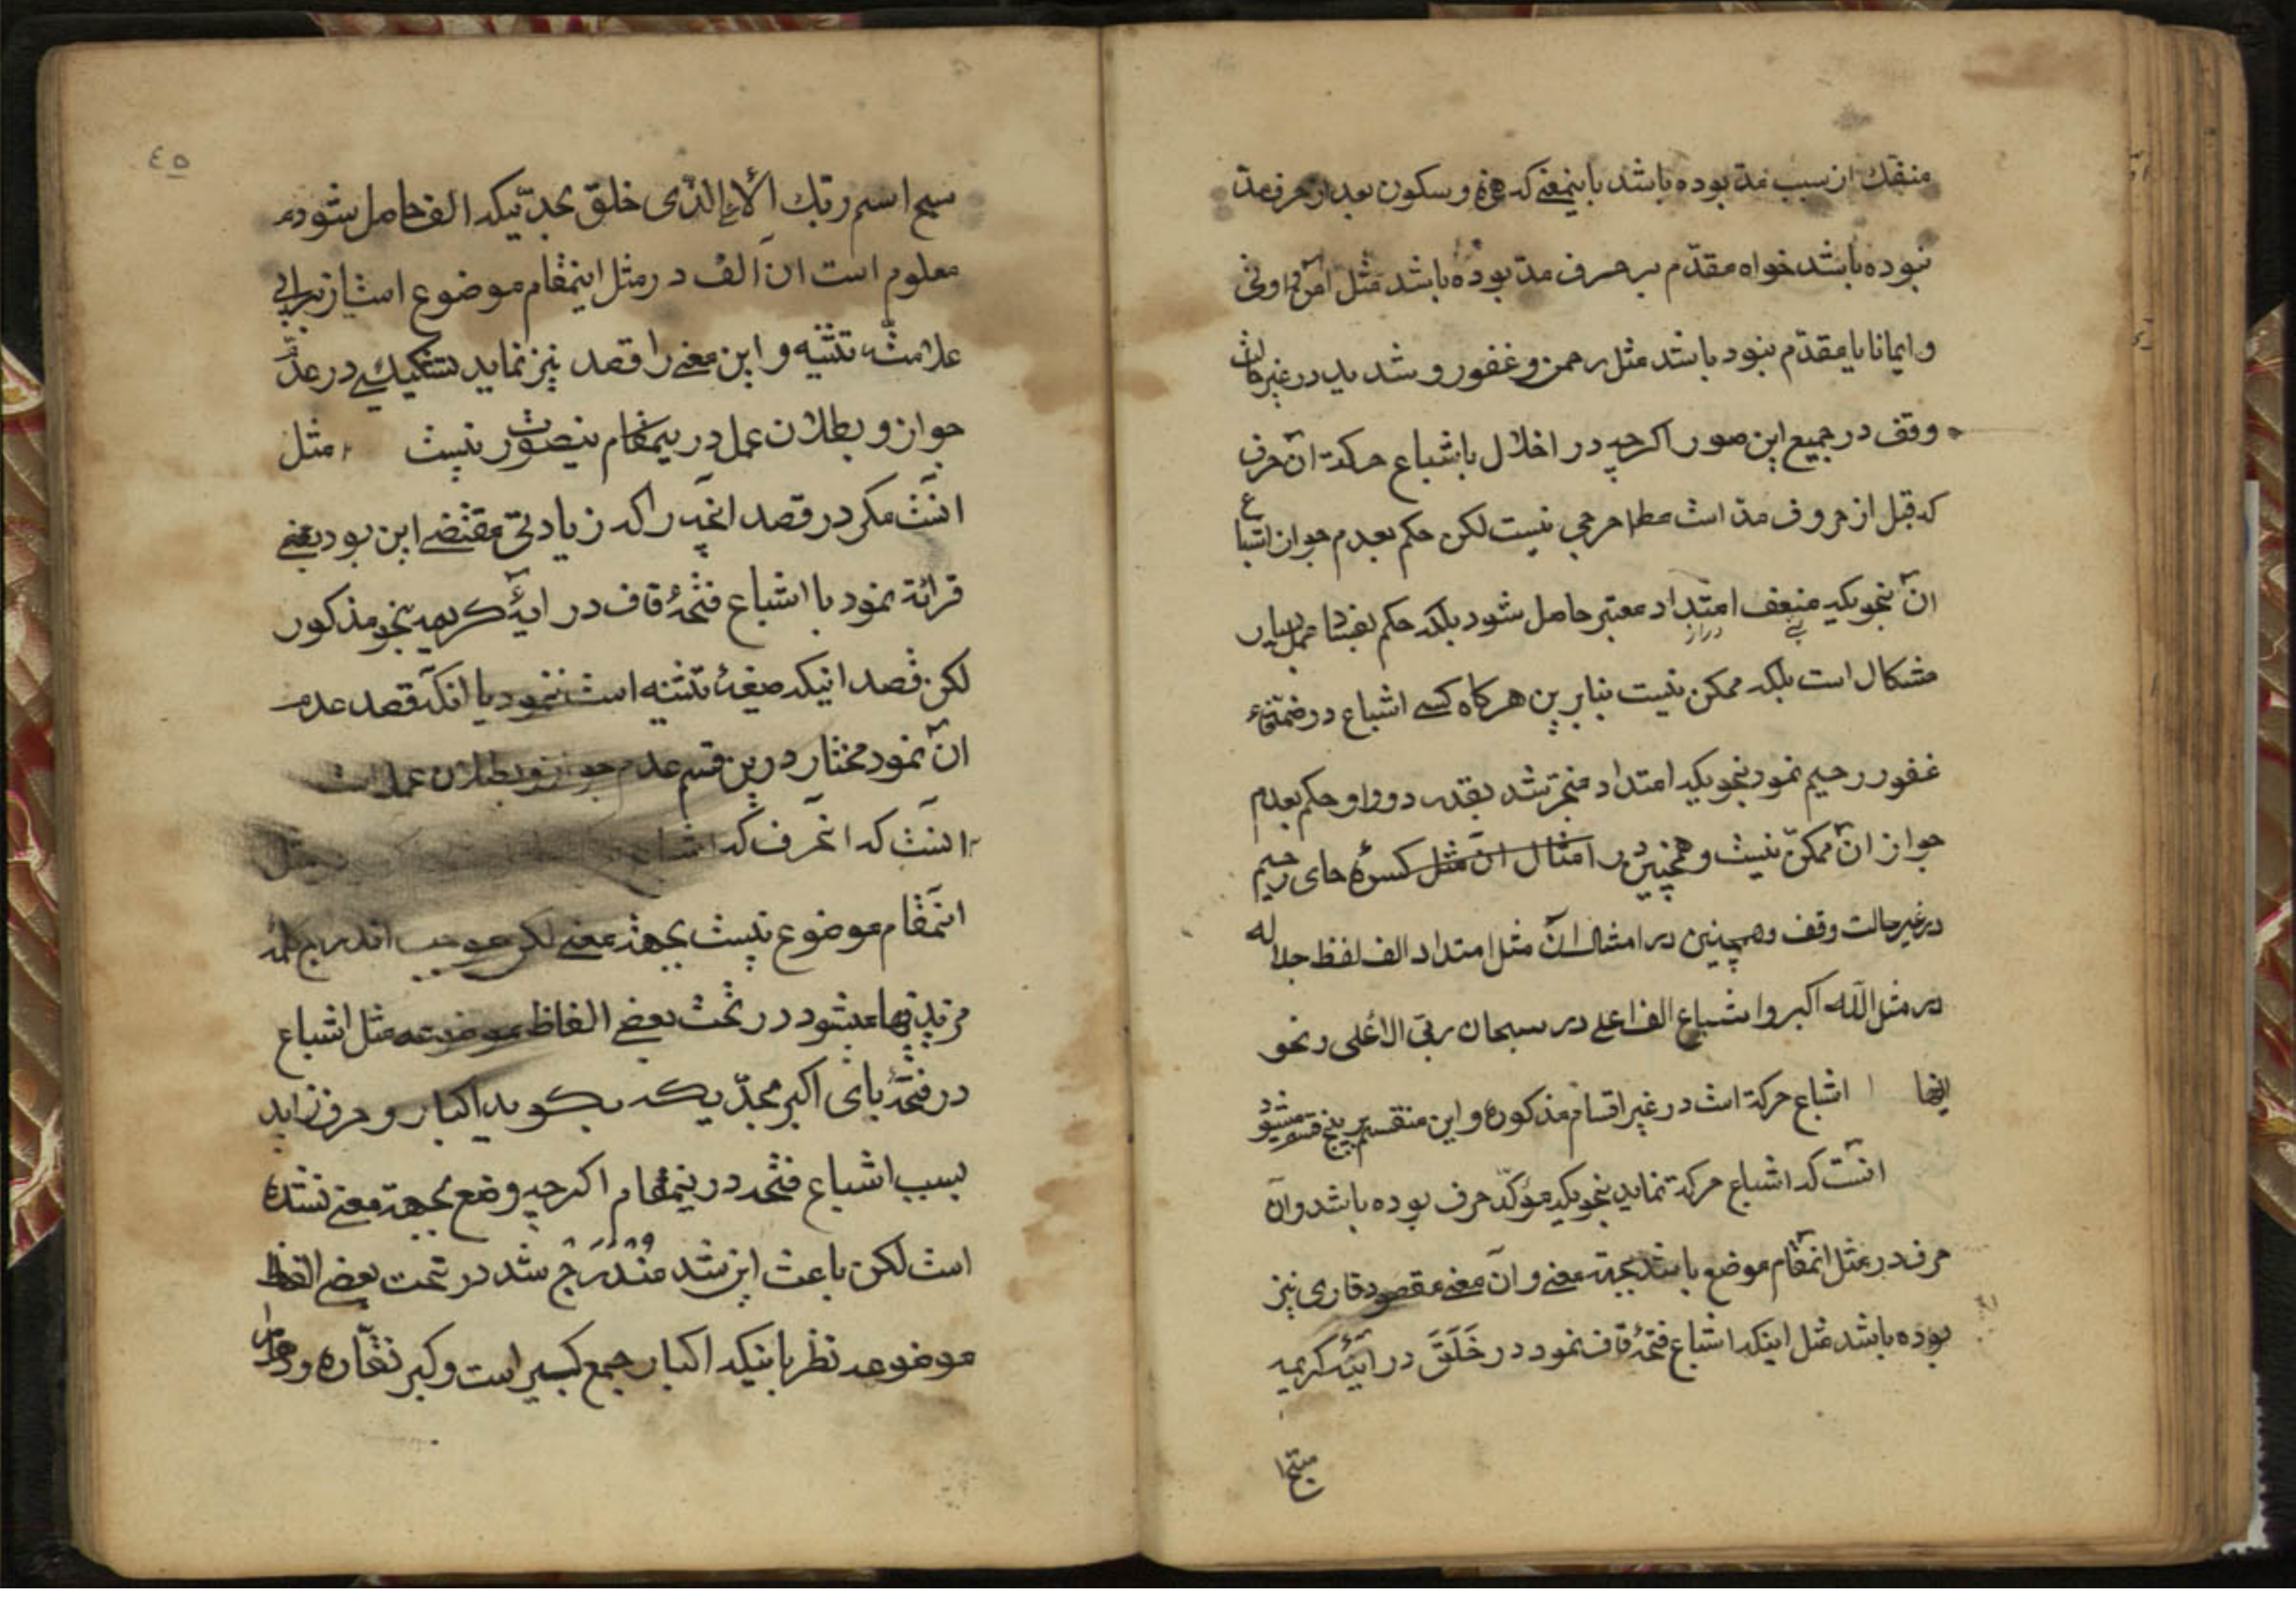 منفک از سبب مدّ بوده باشد باینمعنی که همزه و سکون بعد از حرف مدّ
نبوده باشد خواه مقدّم بر حرف مدّ بوده باشد مثل امن و اوتی
و ایمانا یا مقدّم نبود باشد مثل رحمن و غفور و شدید در غیر حالت
وقف در جمیع این صور اکرچه در اخلال باشباع حرکة آن حرف
که قبل از حروف مدّ است مطلقا حرجی نیست لکن حکم بعدم جواز اشباع
آن بنحویکه امتداد معتبر حاصل شود بلکه حکم بفساد عمل بسیار
مشکال است بلکه ممکن نیست بنابرین هرکاه کسی اشباع در ضمّهٔ فاء
غفور رحیم نمود بنحویکه امتداد منجر شد بقدر دو واو حکم بعدم
جواز آن ممکن نیست و همچنین در امثال آن مثل کسرهٔ حای رحیم
در غیر حالت وقف و همچنین در امثال آن مثل امتداد الف لفظ جلاله
در مثل الله اکبر و اشباع الف اعلی در سبحان ربی الاعلی و نحو
اینها اشباع حرکة است در غیر اقسام مذکوره و این منقسم بر پنج قسم میشود
انست که اشباع حرکة نماید بنحویکه مؤکّد حرف بوده باشد و آن
حرف در مثل انمقام موضوع باشد بجهة معنی و آن معنی مقصود قاری نیز
بوده باشد مثل اینکه اشباع فتحهٔ قاف نمود در خَلَقَ در آیهٔ کریمه
سبّح
٤٥
سبح اسم ربّک الأعلی الّذی خلق بحدّیکه الف حاصل شود
معلوم است ان الف در مثل اینمقام موضوع است از برای
علامت تثنیه و این معنی را قصد نیز نماید تشکیکی در عدم
جواز و بطلان عمل در اینمقام بنصورت نیست مثل
انست مکر در قصد انچه را که زیادتی مقتضی این بود یعنی
قرائة نمود با اشباع فتحهٔ قاف در ایهٔ کریمه بنحو مذکور
لکن قصد اینکه صیغهٔ تثنیه است ننمود یا انکه قصد عدم
آن نمود مختار درین قسم عدم جواز و بطلان عمل است
انست که انحرف که اشباع مثل
انمقام موضوع نیست بجهة معنی لکن موجب اندراج کلمهٔ
مزید بها میشود در تحت بعضی الفاظ موضوعه مثل اشباع
در فتحهٔ بای اکبر بحدّیکه بکوید اکبار و حرف زاید
بسبب اشباع فتحه درینمقام اکرچه وضع بجهة معنی نشده
است لکن باعث این شد مُنْدَرَج شد در تحت بعضی الفاظ
موضوعه نظر باینکه اکبار جمع کبیر است و کبر نقّاره و